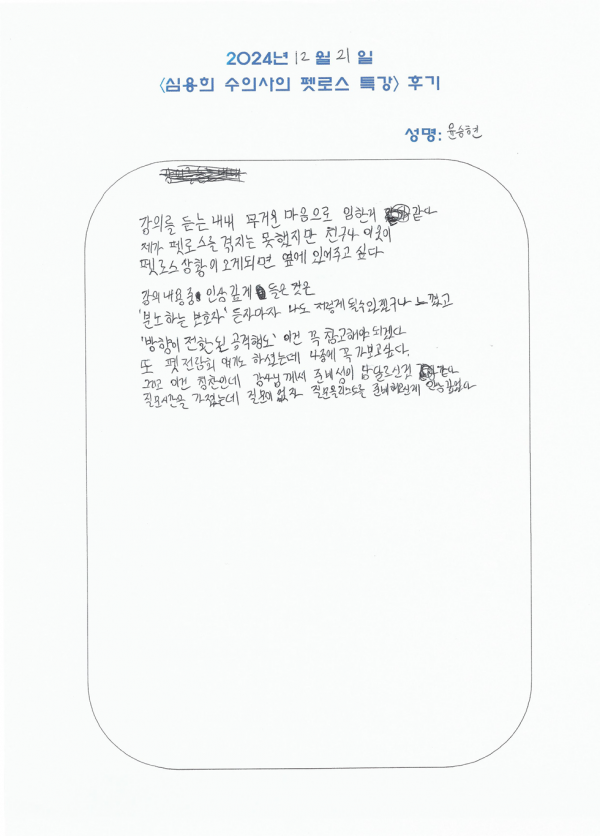 2024년 12월 21일
<심용희 수의사의 펫로스 특강> 후기
성명: 윤승현
강의를 듣는 내내 무거운 마음으로 임한거 같다
제가 펫로스를 겪지는 못했지만 친구나 이웃이
펫로스 상황이 오게되면 옆에 있어주고 싶다
강의 내용중 인상 깊게 들은 것은
'분노하는 보호자' 듣자마자 나도 저렇게 될수있겠구나 느꼈고
'방향이 전환된 공격행동' 이건 꼭 참고해야 되겠다
또 펫 전람회 얘기도 하셨는데 나중에 꼭 가보고싶다.
그리고 이건 칭찬인데 강사님께서 준비성이 남다르신것 같다
질문시간을 가졌는데 질문이 없자 질문을 리스트를 준비해오신게 인상깊었다